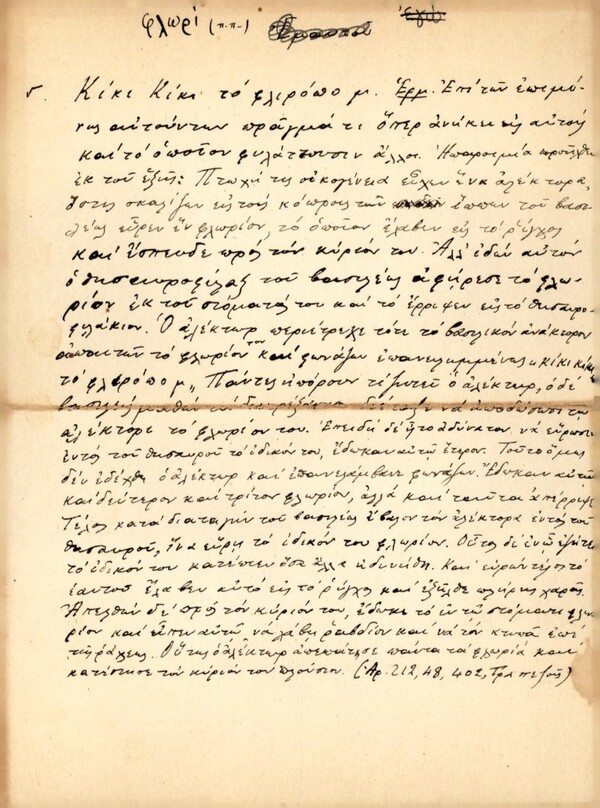 φλωρί (π.π.) ἐγώ
Κίκι Κίκι τό φλιρόπο μ. Ἑρμ. Ἐπί τῶν ἐπιμό-
νως αἰτούντων πρᾶγμά τι ὅπερ ἀνήκει εἰς αὐτούς
καί τό ὁποῖον φυλάττουσιν ἄλλοι. Ἡ παροιμία προῆλθεν
ἐκ τοῦ ἑξῆς: Πτωχή τις οἰκογένεια εἶχεν ἕνα ἀλέκτορα,
ὅστις σκαλίζων εἰς τούς κόπρους τῶν ἵππων τοῦ βασι-
λέως εὗρεν ἕν φλωρίον, τό ὁποῖον ἔλαβεν εἰς τό ῥύγχος
καί ἔσπευδε πρός τόν κύριόν του. Ἀλλ' ἰδών αὐτόν
ὁ θησαυροφύλαξ τοῦ βασιλέως ἀφῄρεσε τό φλω-
ρίον ἐκ τοῦ στόματός του καί τό ἔρριψεν εἰς τό θησαυρο-
φυλάκιον. Ὁ ἀλέκτωρ περιέτρεχε τότε τό βασιλικόν ἀνάκτορον
ἀπαιτῶν τό φλωρίον του καί φωνάζων ἐπανειλημμένως "κίκι κίκι
τό φλιρόπο μ„ Πάντες ἠπόρουν τί ζητεῖ ὁ ἀλέκτωρ, ὁ δέ
βασιλεύς μαθών τά διέταξε νά ἀποδώσωσι τῷ
ἀλέκτορι τό φλωρίον του. Ἐπειδή δέ ἦτο ἀδύνατον νά εὕρωσιν
ἐντός τοῦ θησαυροῦ τό ἰδικόν του, ἔδωκαν αὐτῷ ἕτερον. Τοῦτο ὅμως
δέν ἐδέχθη ὁ ἀλέκτωρ καί ἐπανελάμβανε φωνάζων. Ἔδωκαν αὐτῷ
καί δεύτερον καί τρίτον φλωρίον, ἀλλά καί ταῦτα ἀπέρριψε.
Τέλος κατά διαταγήν τοῦ βασιλέως ἔβαλον τόν ἀλέκτορα ἐντός τοῦ
θησαυροῦ, ἵνα εὕρῃ τό ἰδικόν του φλωρίον. Οὗτος δέ ἐνῷ ἐζήτει
τό ἰδικόν του κατέπιεν ὅσα ἄλλα ἠδυνήθη. Καί εὑρών τέλος τό
ἑαυτοῦ ἔλαβεν αὐτό εἰς τό ῥύγχος καί ἐξῆλθε πλήρης χαρᾶς.
Ἀπελθών δέ πρός τόν κύριόν του, ἔδωκε τό ἐν τῷ στόματι φλω-
ρίον καί εἶπεν αὐτῷ νά λάβῃ ῥαβδίον καί νά τόν κτυπᾷ ἐπί
τῆς ῥάχεως. Οὕτως ὁ ἀλέκτωρ ἀπεπάτησε πάντα τά φλωριά καί
κατέστησε τόν κύριόν του πλούσιον. (Ἀρ. 212, 48, 402, Τραπεζοῦς)